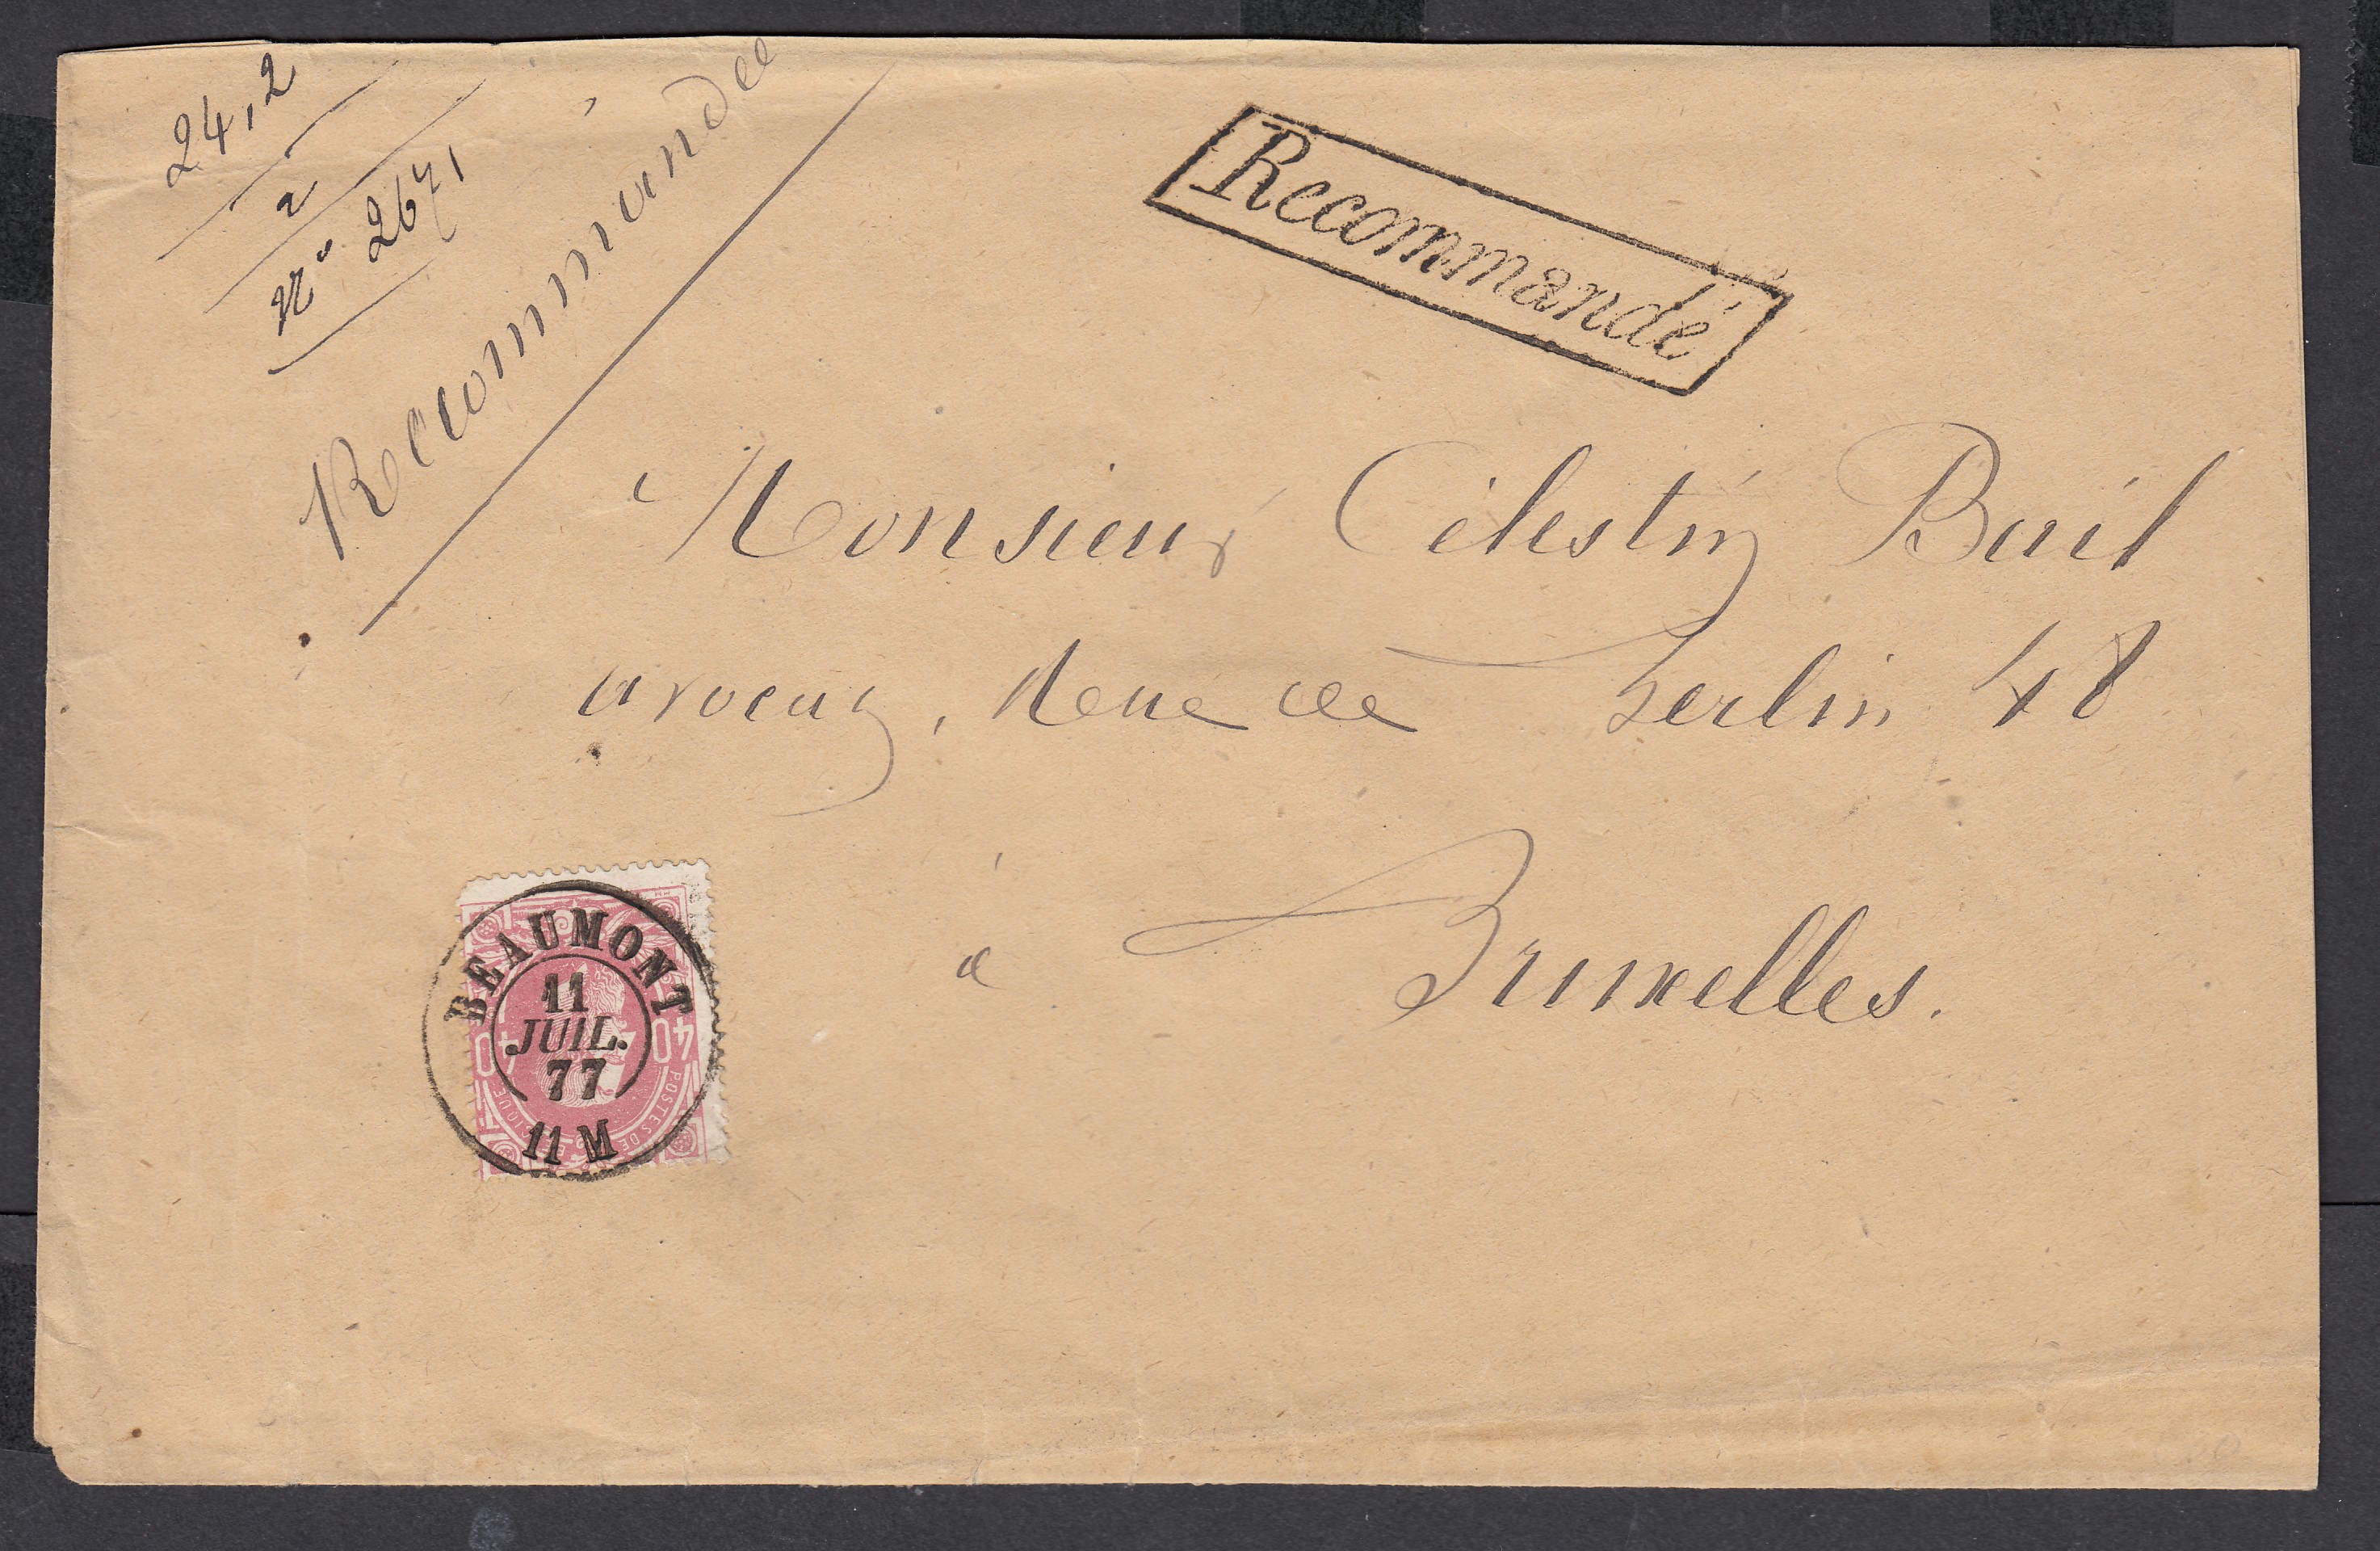 24,2
2
N° 2671
Recommandée
Recommandé
Monsieur Célestin Bail
avocat, Rue de Berlin 48
à Bruxelles.
BEAUMONT
11
JUIL.
77
11 M
40 40
POSTES DE BELGIQUE